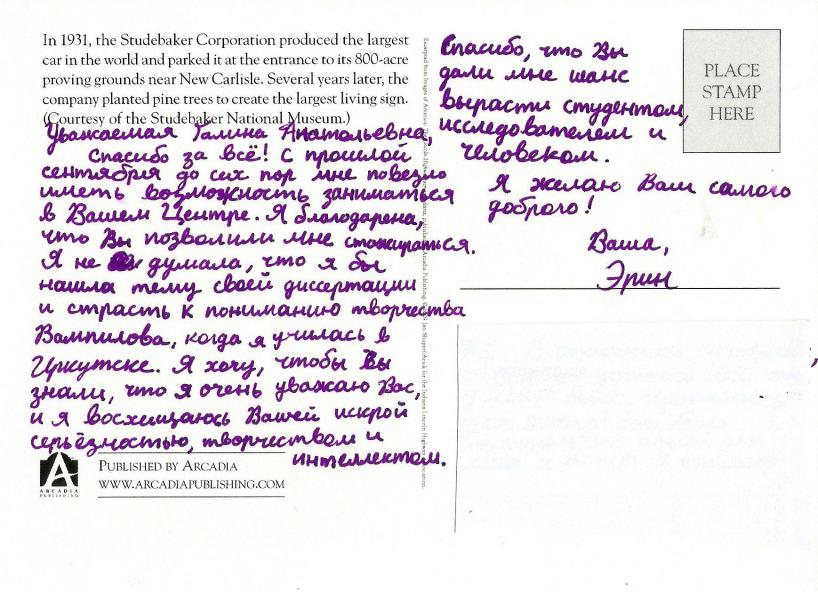 In 1931, the Studebaker Corporation produced the largest
car in the world and parked it at the entrance to its 800-acre
proving grounds near New Carlisle. Several years later, the
company planted pine trees to create the largest living sign.
(Courtesy of the Studebaker National Museum.)
Уважаемая Галина Анатольевна,
Спасибо за всё! С прошлой
сентября до сих пор мне повезло
иметь возможность заниматься
в Вашем Центре. Я благодарена,
что Вы позволили мне стажираться.
Я не думала, что я бы
нашла тему своей диссертации
и страсть к пониманию творчества
Вампилова, когда я училась в
Иркутске. Я хочу, чтобы Вы
знали, что я очень уважаю Вас,
и я восхищаюсь Вашей искрой
серьёзностью, творчеством и
интеллектом.
ARCADIA
PUBLISHING
PUBLISHED BY ARCADIA
WWW.ARCADIAPUBLISHING.COM
Excerpted from Images of America: The
Arcadia Publishing
for the Indiana Lincoln Highway Association.
Спасибо, что Вы
дали мне шанс
вырасти студентом,
исследователем и
человеком.
Я желаю Вам самого
доброго!
Ваша,
Эрин
PLACE
STAMP
HERE